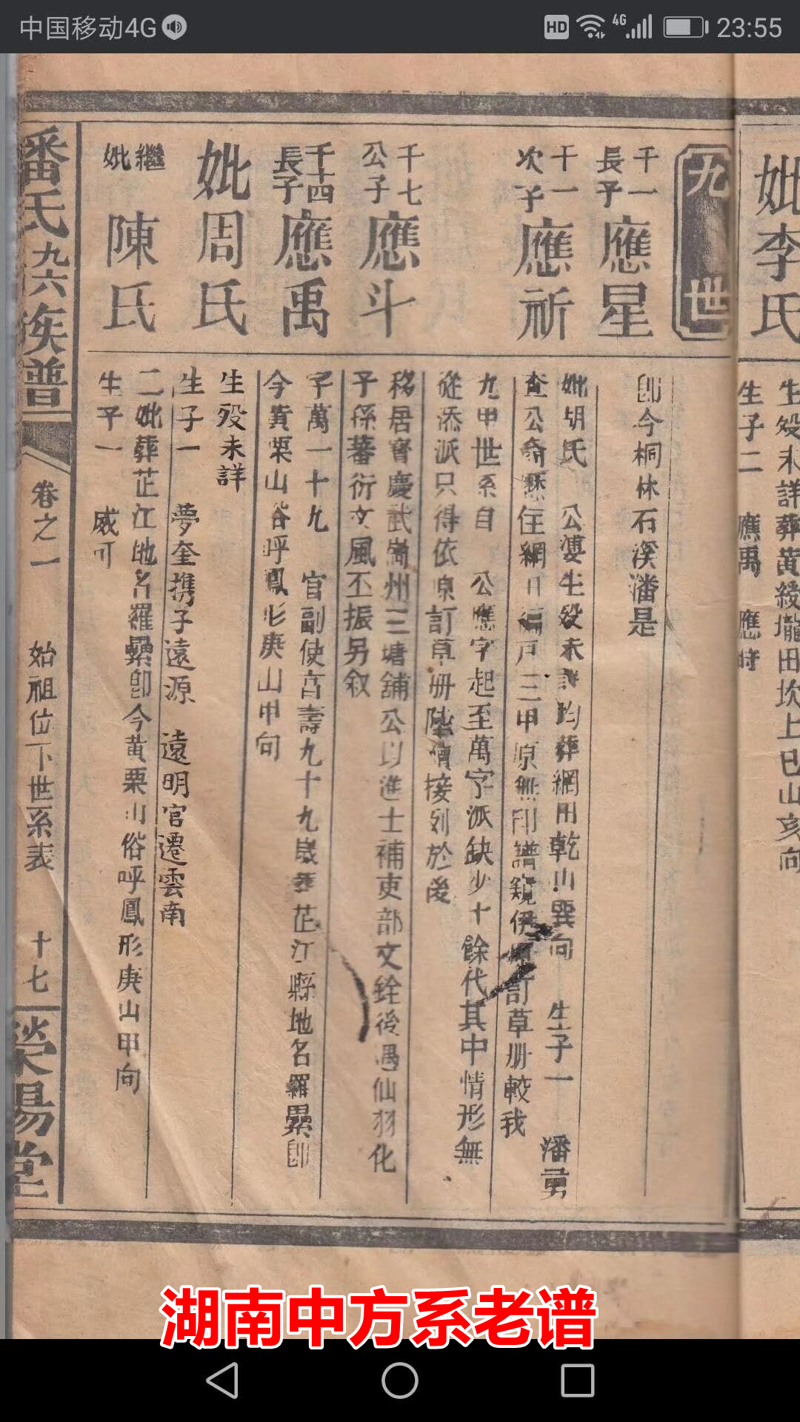 中国移动4G
HD
4G
23:55
妣李氏
生歿未詳葬黃綬壠田坎上巳山亥向
生子二 應禹 應時
九世
千一長子 應星
卽今桐林石溪潘是
千一次子 應祈
妣胡氏 公婆生歿未詳均葬網用乾山巽向 生子一 潘勇
查公裔住網編戶三甲原無印譜訂草册較我
九甲世系自 公應字起至萬字派缺少十餘代其中情形無
從添派只得依原訂草册陸續接列於後
千七公子 應斗
移居寳慶武崗州三塘鋪公以進士補吏部文銓後遇仙羽化
子孫蕃衍文風丕振另敘
千四長子 應禹
字萬一十九 官副使吉壽九十九歲葬芷江縣地名羅纍卽
今黃栗山俗呼鳳形庚山甲向
妣周氏
生歿未詳
生子一 夢奎携子遠源 遠明官遷雲南
繼妣 陳氏
二妣葬芷江地名羅纍卽今黃栗山俗呼鳳形庚山甲向
生子一 威可
潘氏九六族譜
卷之一
始祖位下世系表
十七
滎陽堂
湖南中方系老谱